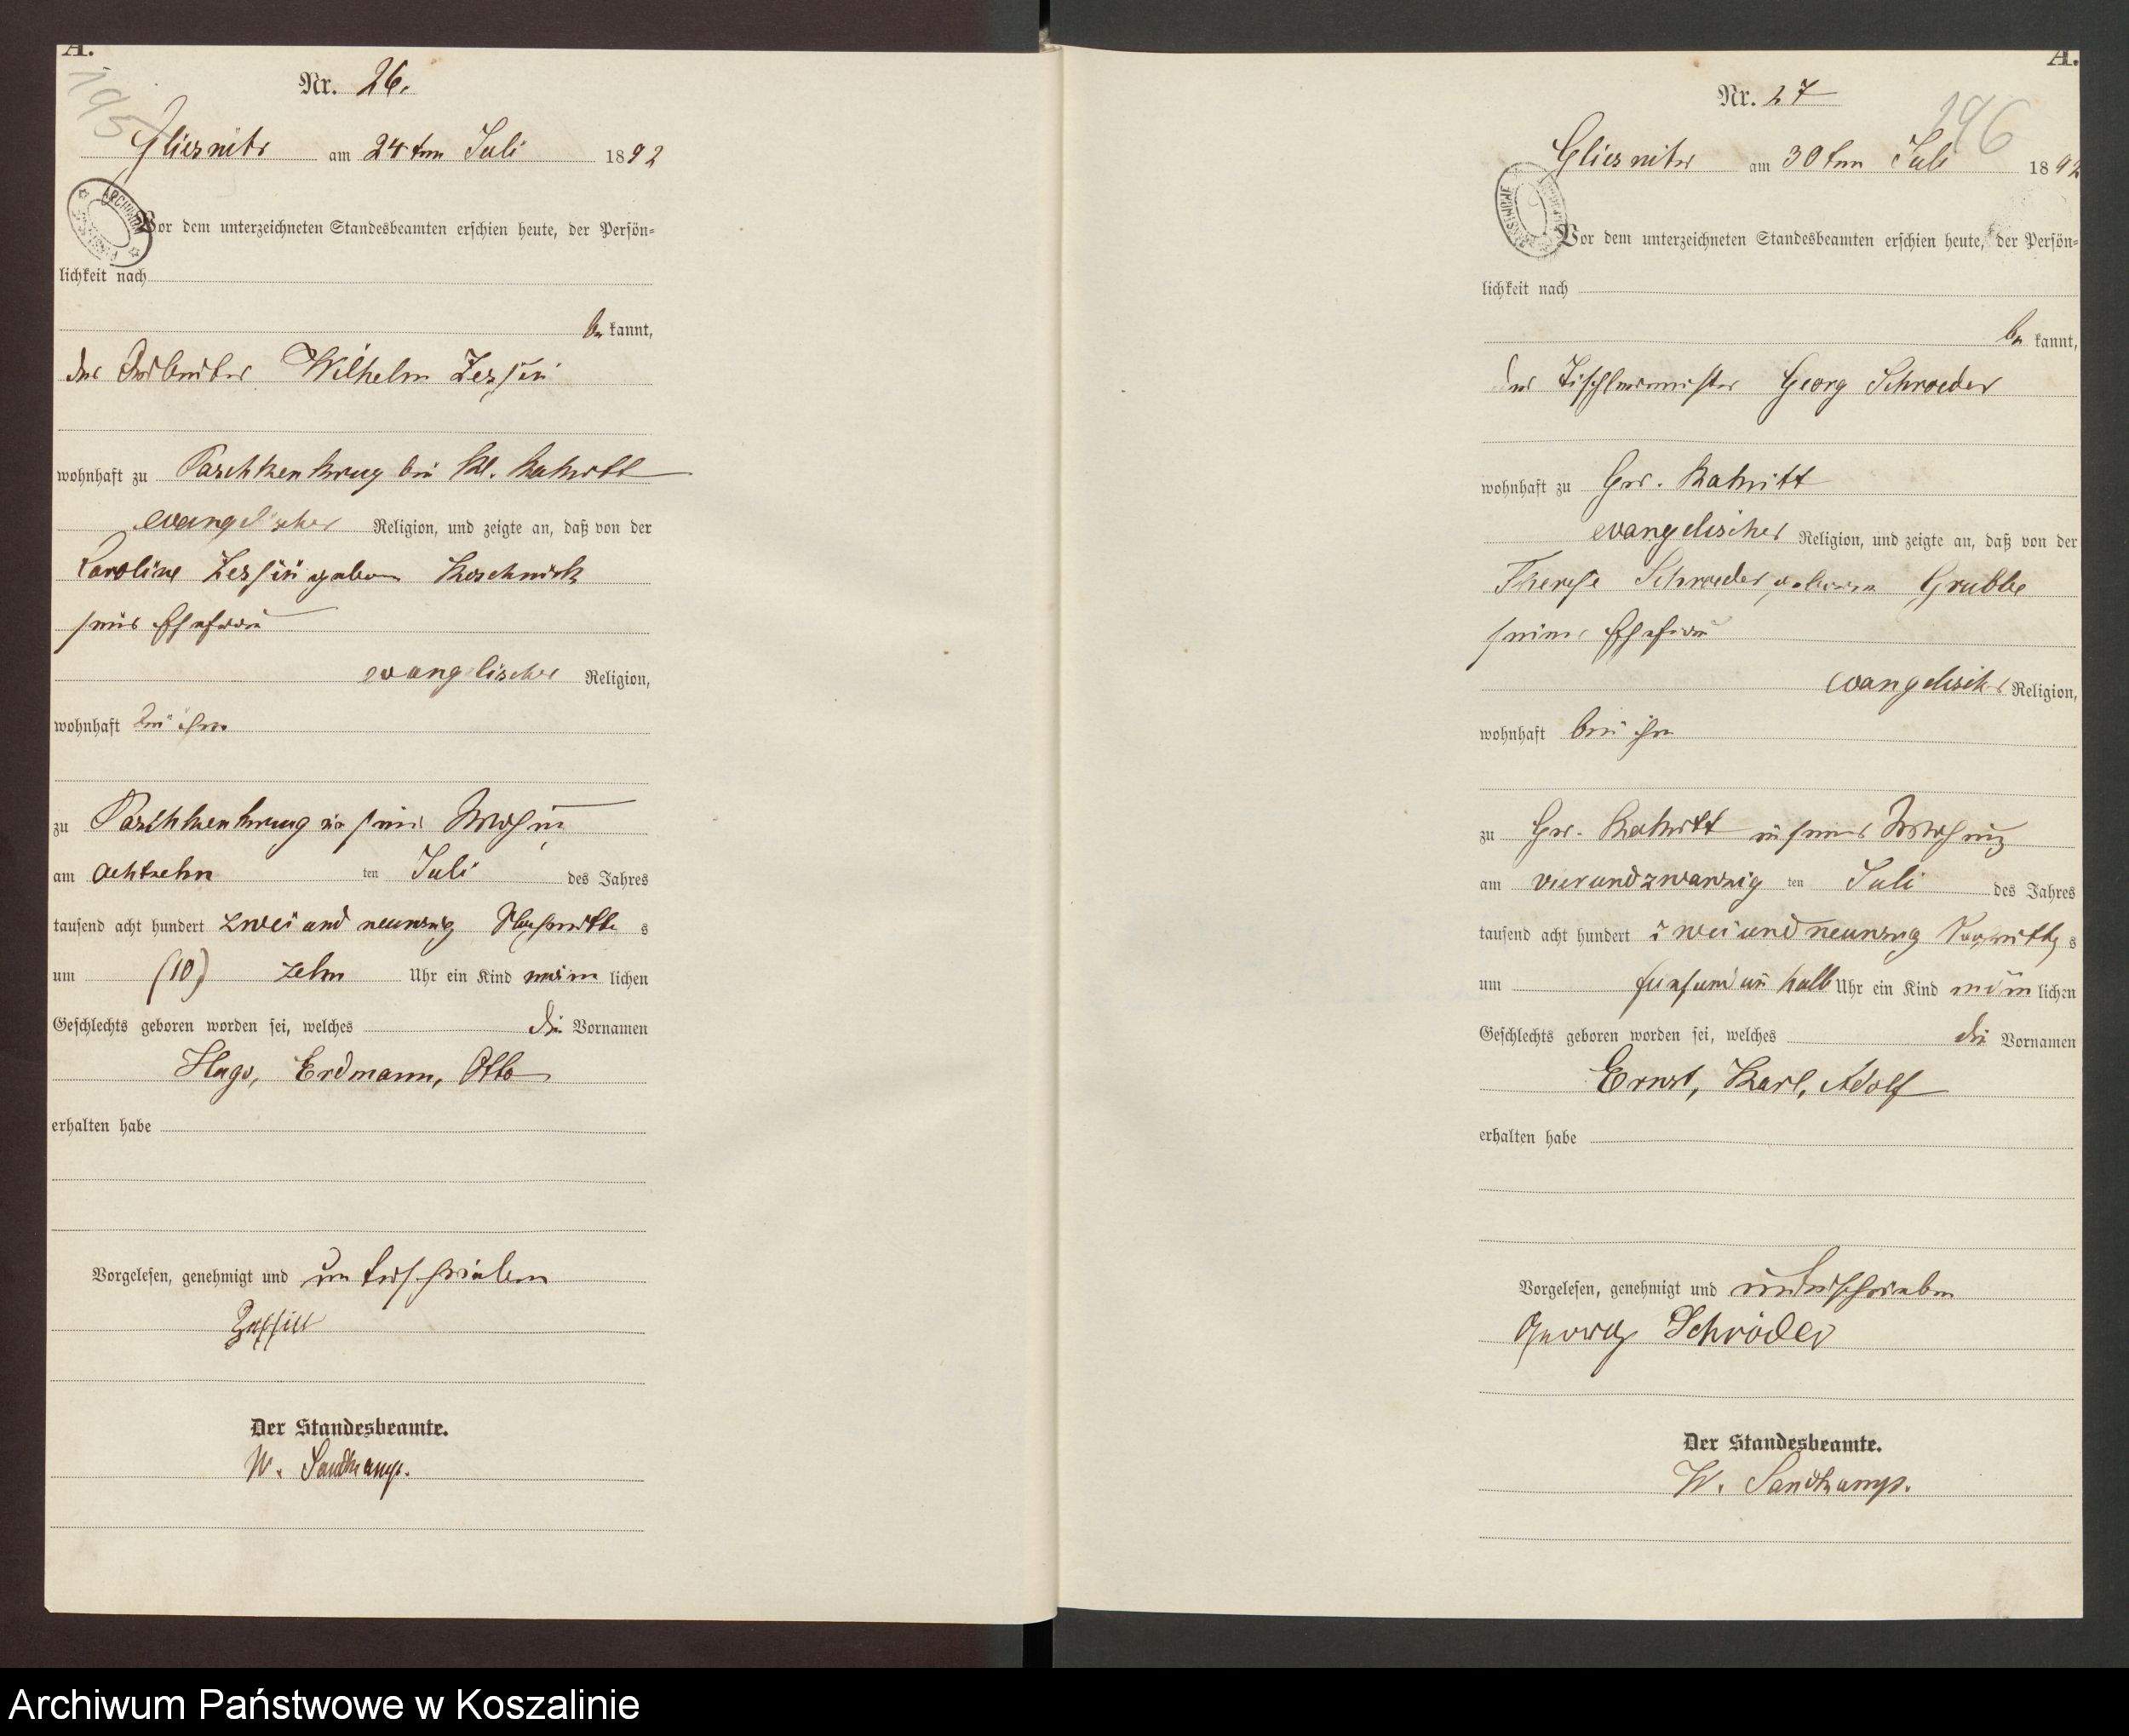 A.
195
Nr. 26.
Gliesnitz am 24ten Juli 1892
Vor dem unterzeichneten Standesbeamten erschien heute, der Persön=
lichkeit nach
be kannt,
der Arbeiter Wilhelm
wohnhaft zu Paschkenkrug bei Kl.
evangelischer Religion, und zeigte an, daß von der
Caroline geboren Koschnick
seiner Ehefrau
evangelischer Religion,
wohnhaft bei ihm
zu Paschkenkrug in seiner Wohnung
am achtzehn ten Juli des Jahres
tausend acht hundert zwei und neunzig Nachmittag s
um (10) zehn Uhr ein Kind männ lichen
Geschlechts geboren worden sei, welches die Vornamen
Hugo, Erdmann, Otto
erhalten habe
Vorgelesen, genehmigt und unterschrieben
Der Standesbeamte.
W. Sandkamp.
A.
Nr. 27
196
Gliesnitz am 30ten Juli 1892
Vor dem unterzeichneten Standesbeamten erschien heute, der Persön=
lichkeit nach
be kannt,
der Tischlermeister Georg Schroeder
wohnhaft zu Gr.
evangelischer Religion, und zeigte an, daß von der
Therese Schroeder geboren Grubbe
seiner Ehefrau
evangelischer Religion,
wohnhaft bei ihm
zu Gr. in seiner Wohnung
am vierundzwanzig ten Juli des Jahres
tausend acht hundert zweiundneunzig s
um fünfundeinhalb Uhr ein Kind männ lichen
Geschlechts geboren worden sei, welches die Vornamen
Ernst, Karl, Adolf
erhalten habe
Vorgelesen, genehmigt und unterschrieben
Georg Schröder
Der Standesbeamte.
W. Sandkamp.
Archiwum Państwowe w Koszalinie